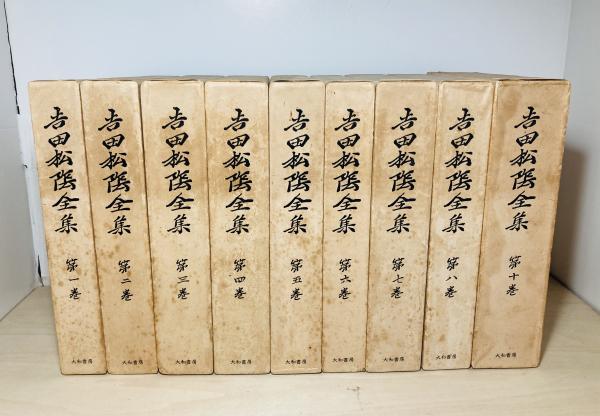 吉田松陰全集 第一巻 大和書房
吉田松陰全集 第二巻 大和書房
吉田松陰全集 第三巻 大和書房
吉田松陰全集 第四巻 大和書房
吉田松陰全集 第五巻 大和書房
吉田松陰全集 第六巻 大和書房
吉田松陰全集 第七巻 大和書房
吉田松陰全集 第八巻 大和書房
吉田松陰全集 第十巻 大和書房